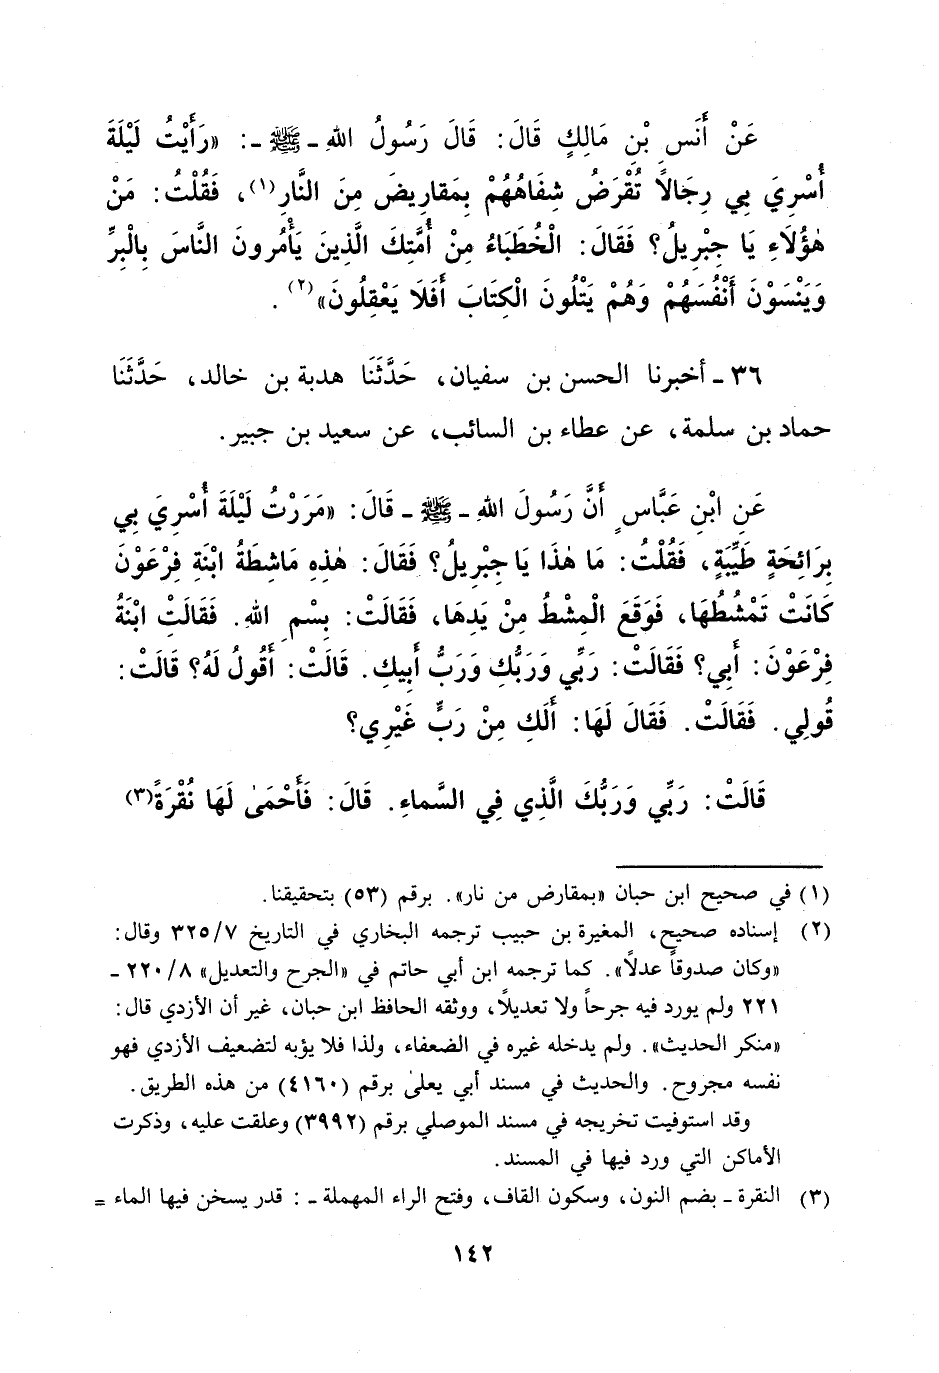 عَنْ أَنَسِ بْنِ مَالِكٍ قَالَ: قَالَ رَسُولُ اللهِ ـ ﷺ ـ: «رَأَيْتُ لَيْلَةَ
أُسْرِيَ بِي رِجَالاً تُقْرَضُ شِفَاهُهُمْ بِمَقاريضَ مِنَ النَّارِ(١)، فَقُلْتُ: مَنْ
هٰؤُلَاءِ يَا جِبْرِيلُ؟ فَقَالَ: الْخُطَبَاءُ مِنْ أُمَّتِكَ الَّذِينَ يَأْمُرونَ النَّاسَ بِالْبِرِّ
وَيَنْسَوْنَ أَنْفُسَهُمْ وَهُمْ يَتْلُونَ الْكِتَابَ أَفَلَا يَعْقِلُونَ»(٢).
٣٦ ـ أخبرنا الحسن بن سفيان، حَدَّثَنَا هدبة بن خالد، حَدَّثَنَا
حماد بن سلمة، عن عطاء بن السائب، عن سعيد بن جبير.
عَنِ ابْنِ عَبَّاسٍ أَنَّ رَسُولَ اللهِ ـ ﷺ ـ قَالَ: «مَرَرْتُ لَيْلَةَ أُسْرِيَ بِي
بِرَائِحَةٍ طَيِّبَةٍ، فَقُلْتُ: مَا هٰذَا يَا جِبْرِيلُ؟ فَقَالَ: هٰذِهِ مَاشِطَةُ ابْنَةِ فِرْعَوْنَ
كَانَتْ تَمْشُطُهَا، فَوَقَعَ الْمِشْطُ مِنْ يَدِهَا، فَقَالَتْ: بِسْمِ اللهِ. فَقَالَتِ ابْنَةُ
فِرْعَوْنَ: أَبِي؟ فَقَالَتْ: رَبِّي وَرَبُّكِ وَرَبُّ أَبِيكِ. قَالَتْ: أَقُولُ لَهُ؟ قَالَتْ:
قُولِي. فَقَالَتْ. فَقَالَ لَهَا: أَلَكِ مِنْ رَبٍّ غَيْرِي؟
قَالَتْ: رَبِّي وَرَبُّكَ الَّذِي فِي السَّماءِ. قَالَ: فَأَحْمَىٰ لَهَا نُقْرَةً(٣)
(١) في صحيح ابن حبان «بمقارض من نار». برقم (٥٣) بتحقيقنا.
(٢) إسناده صحيح، المغيرة بن حبيب ترجمه البخاري في التاريخ ٣٢٥/٧ وقال:
«وكان صدوقاً عدلاً». كما ترجمه ابن أبي حاتم في «الجرح والتعديل» ٢٢٠/٨ ـ
٢٢١ ولم يورد فيه جرحاً ولا تعديلاً، ووثقه الحافظ ابن حبان، غير أن الأزدي قال:
«منكر الحديث». ولم يدخله غيره في الضعفاء، ولذا فلا يؤبه لتضعيف الأزدي فهو
نفسه مجروح. والحديث في مسند أبي يعلىٰ برقم (٤١٦٠) من هذه الطريق.
وقد استوفيت تخريجه في مسند الموصلي برقم (٣٩٩٢) وعلقت عليه، وذكرت
الأماكن التي ورد فيها في المسند.
(٣) النقرة ـ بضم النون، وسكون القاف، وفتح الراء المهملة ـ: قدر يسخن فيها الماء =
١٤٢